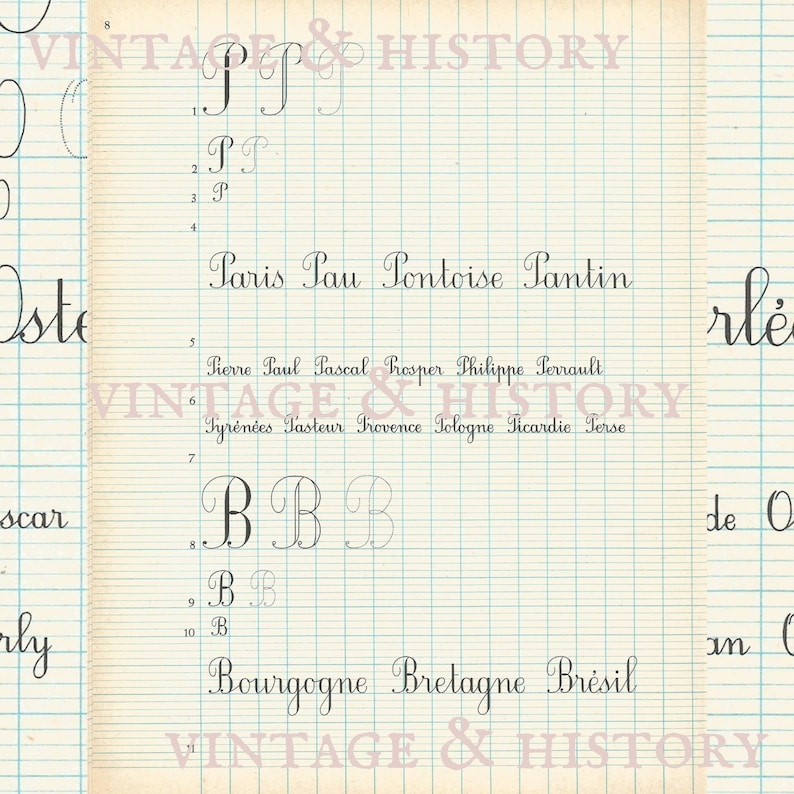 8
VINTAGE & HISTORY
P P P
1
P P
2
P
3
4
Paris Pau Pontoise Pantin
5
Pierre Paul Pascal Prosper Philippe Perrault
VINTAGE & HISTORY
6
Pyrénées Pasteur Provence Pologne Picardie Perse
7
B B B
8
B B
9
B
10
Bourgogne Bretagne Brésil
VINTAGE & HISTORY
11
Oste
scar
rly
rlé
de O
an O